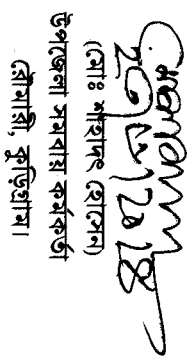 (মোঃ শাহাবুৎ হোসেন)
উপজেলা সমবায় কর্মকর্তা
রৌমারী, কুড়িগ্রাম।